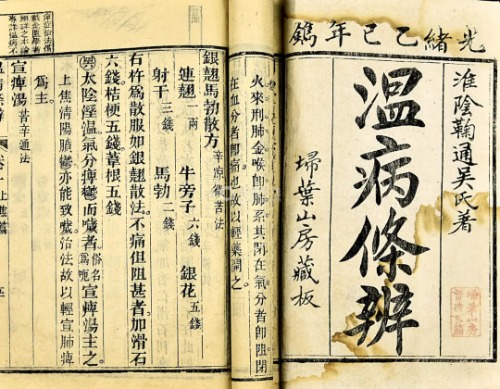 光緒乙巳年鐫
淮陰鞠通吳氏著
温病條辨
埽葉山房藏板
火來刑肺金喉卽肺系其閉在氣分者卽阻閉
在血分者卽痛也故以輕藥開之
銀翹馬勃散方 辛凉微苦法
連翹一兩 牛旁子六錢 銀花五錢
射干三錢 馬勃二錢
右杵爲散服如銀翹散法不痛但阻甚者加滑石
六錢桔梗五錢葦根五錢
太陰溼温氣分痺鬱而噦者俗名爲呃宣痺湯主之
上焦清陽膹鬱亦能致噦治法故以輕宣肺痺
爲主
宣痺湯 苦辛通法
上焦篇